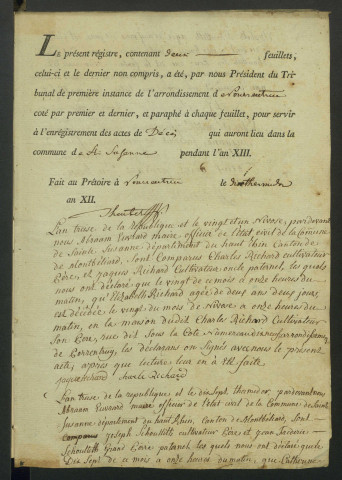 Le présent régistre, contenant deux feuillets,
celui-ci et le dernier non compris, a été, par nous Président du Tri-
bunal de première instance de l'arrondissement de Porrentrui
coté par premier et dernier, et paraphé à chaque feuillet, pour servir
à l'enrégistrement des actes de Décès qui auront lieu dans la
commune de St. Suzanne pendant l'an XIII.
Fait au Prétoire à Porrentrui le 6 thermidor
an XII.
L'an treise de la République et le vingt et un Nivose, pardevant
nous Abraam Euvrard maire officier de l'etat civil de la Commune
de Sainte Susanne département du haut Rhin Canton de
Montbéliard, sont Comparus Charles Richard cultivateur
Père, et jaques Richard Cultivateur oncle paternel, les quels
nous ont déclaré, que le vingt de ce mois à onze heures du
matin, qu'Elizabeth Richard agée de deux ans deux jours,
est décedée le vingt du mois de Nivose a onze heures du
matin, en la maison dudit Charles Richard Cultivateur
son Père, rue dit sous la Cote Numero
de Porrentruy, les déclarans ont signés avec nous le présent
acte, après que lecture leur en à été faite
jaque Richard Charle Richard
L'an treise de la republique et le dix sept thermidor, pardevant nous
Abraam Euvrard maire officier de l'etat civil de la Commune de Sainte
Susanne département du haut Rhin, Canton de Montbéliard, sont
comparus joseph cultivateur Père et jean frederic
grand Pere paternel les quels nous ont déclaré que le
Dix sept de ce mois à onze heures du matin, que Catherine